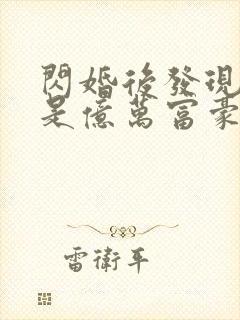 閃婚後發現
是億萬富豪
雷衛平